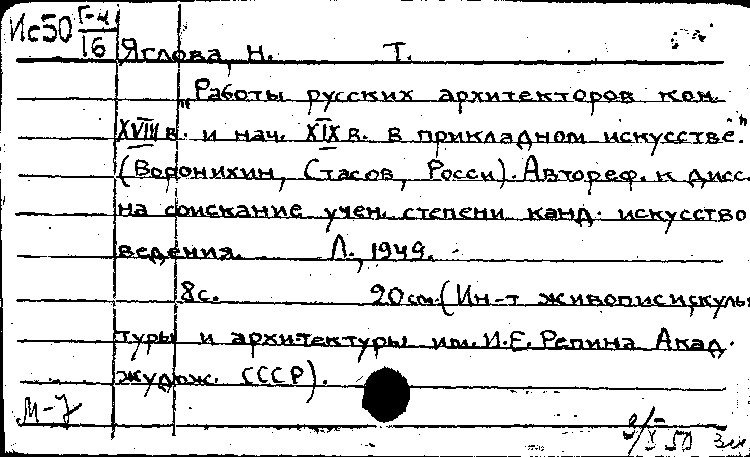 Ис50 Г-4/16
Яглова, Н. Т.
„Работы русских архитекторов кон.
XVIII в. и нач. XIX в. в прикладном искусстве."
(Воронихин, Стасов, Росси). Автореф. к дисс.
на соискание учен. степени канд. искусство
ведения. Л., 1949.
8с. 20см. (Ин-т живописи, скуль
туры и архитектуры им. И.Е. Репина Акад.
худож. СССР).
М-7
9/X 50